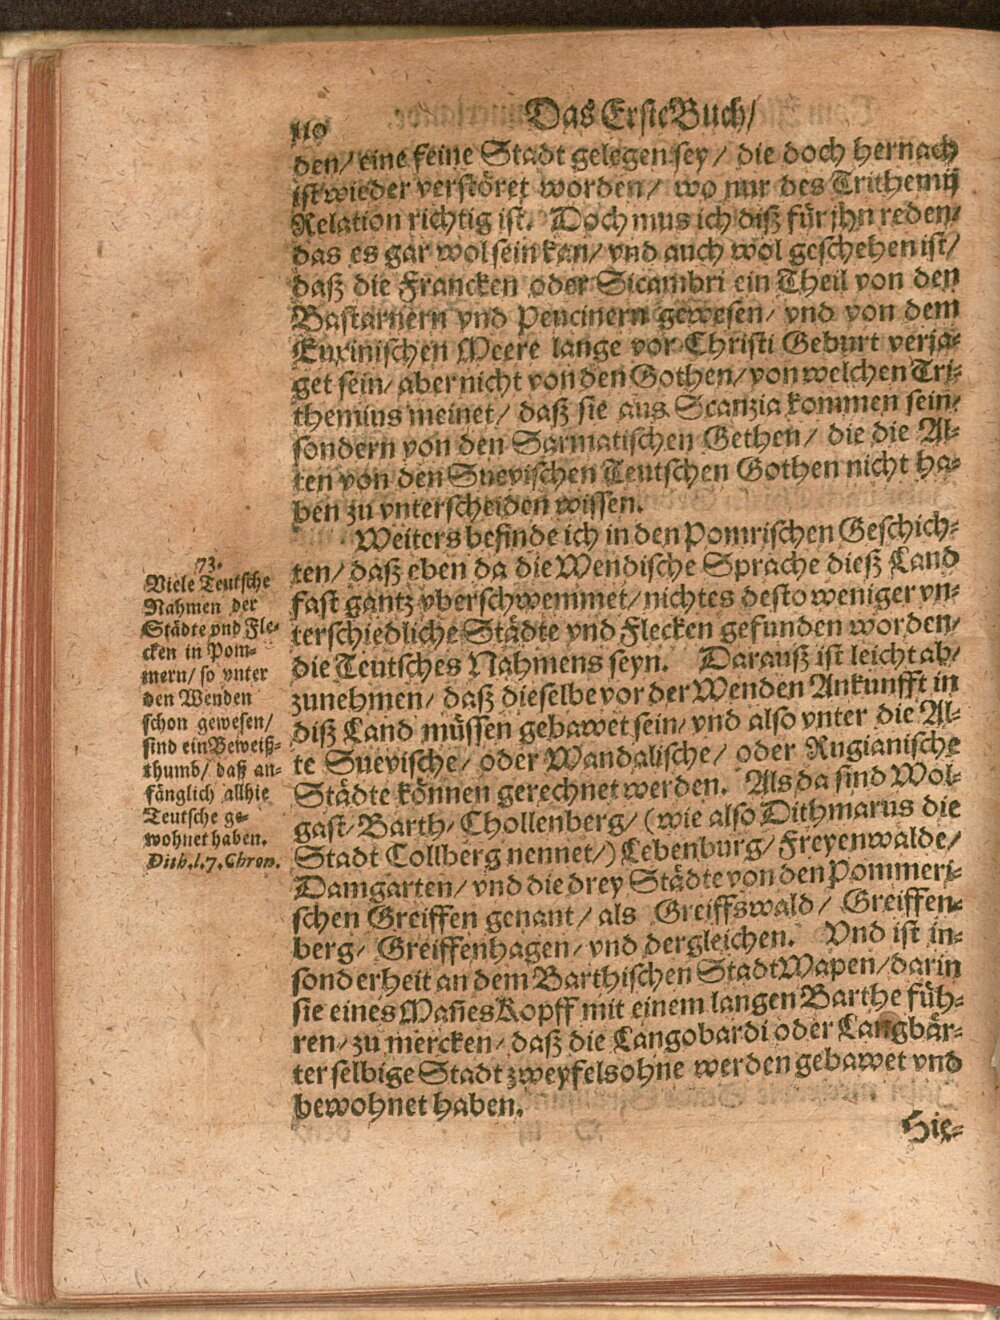 110
Das Erste Buch/
den/ eine feine Stadt gelegen sey/ die doch hernach
ist wieder verstöret worden/ wo nur des Trithemij
Relation richtig ist. Doch mus ich diß für jhn reden/
das es gar wol sein kan/ vnd auch wol geschehen ist/
daß die Francken oder Sicambri ein Theil von den
Bastarnern vnd Peucinern gewesen/ vnd von dem
Euxinischen Meere lange vor Christi Geburt verja-
get sein/ aber nicht von den Gothen/ von welchen Tri-
themius meinet/ daß sie aus Scanzia kommen sein/
sondern von den Sarmatischen Gethen/ die die Al-
ten von den Suevischen Teutschen Gothen nicht ha-
ben zu vnterscheiden wissen.
Weiters befinde ich in den Pomrischen Geschich-
ten/ daß eben da die Wendische Sprache dieß Land
fast gantz vberschwemmet/ nichtes desto weniger vn-
terschiedliche Städte vnd Flecken gefunden worden/
die Teutsches Nahmens seyn. Darauß ist leicht ab/
zunehmen/ daß dieselbe vor der Wenden Ankunfft in
diß Land müssen gebawet sein/ vnd also vnter die Al-
te Suevische/ oder Wandalische/ oder Rugianische
Städte können gerechnet werden. Als da sind Wol-
gast/ Barth/ Chollenberg/ (wie also Dithmarus die
Stadt Collberg nennet/) Lebenburg/ Freyenwalde/
Damgarten/ vnd die drey Städte von den Pommeri-
schen Greiffen genant/ als Greiffswald/ Greiffen-
berg/ Greiffenhagen/ vnd dergleichen. Vnd ist in-
sonderheit an dem Barthischen StadtWapen/ darin
sie eines Mañes Kopff mit einem langen Barthe füh-
ren/ zu mercken/ daß die Langobardi oder Langbär-
ter selbige Stadt zweyfelsohne werden gebawet vnd
bewohnet haben.
Hie-
73.
Viele Teutsche
Nahmen der
Städte vnd Fle-
cken in Pom-
mern/ so vnter
den Wenden
schon gewesen/
sind ein Beweiß-
thumb/ daß an-
fänglich allhie
Teutsche ge-
wohnet haben.
Dith. l. 7. Chron.